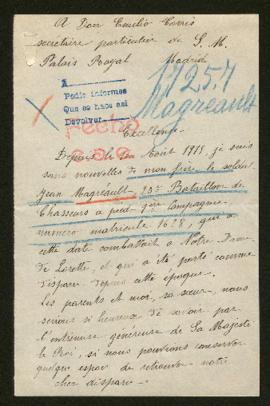 A Don Emilio Torrès
secrétaire particulier de S. M.
Palais Royal Madrid
A
Pedir informes
Que se hace así
Devolver
1725.7
Magréault
Excellence
Depuis le Août 1915, je suis
sans nouvelles de mon frère le soldat
Jean Magréault, Bataillon de
Chasseurs à pied Compagnie
numéro matricule 1628, qui à
cette date combattait à Notre Dame
de Lorette, et qui a été porté comme
disparu depuis cette époque.
Les parents et moi, sa sœur, nous
serions si heureux de savoir par
l'entremise généreuse de Sa Majesté
le Roi, si nous pouvions conserver
quelque espoir de retrouver notre
cher disparu.